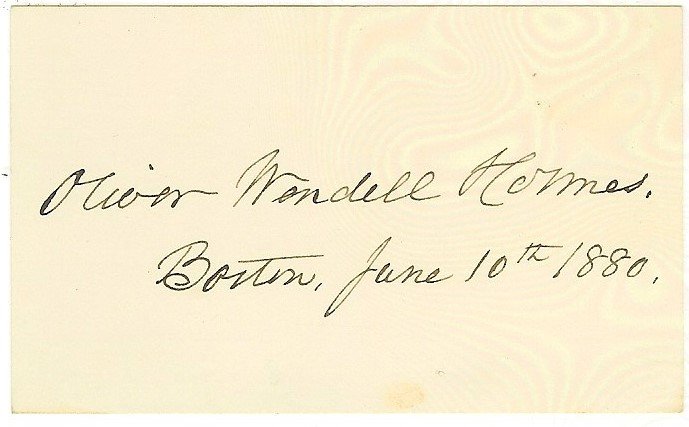 Oliver Wendell Holmes.
Boston, June 10th 1880.